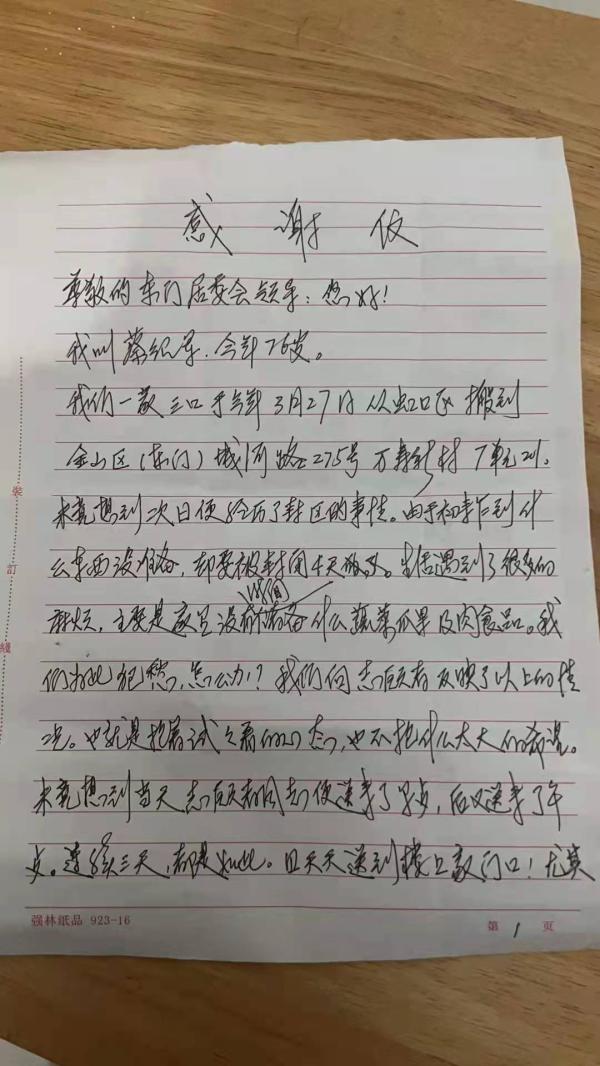 感谢信
尊敬的东门居委会领导：您好！
我叫蔡纪军，今年76岁。
我们一家三口于今年3月27日从虹口区搬到
金山区（东门）城河路275号万寿新村7单元211。
未竟想到次日便经历了封区的事情。由于初来乍到什
么东西没准备，却要被封闭4天。生活遇到了很多的
麻烦，主要是家里没有时间备什么蔬菜瓜果及肉食品。我
们为此犯愁，怎么办！？我们向志愿者反映了以上的情
况。也就是抱着试之看的心态，也不抱什么太大的希望。
未竟想到当天志愿者同志便送来了早点，后又送来了午
点。连续三天，都是如此。且天天送到楼上家门口！尤其
强林纸品 923-16
第 1 页
装
订
线